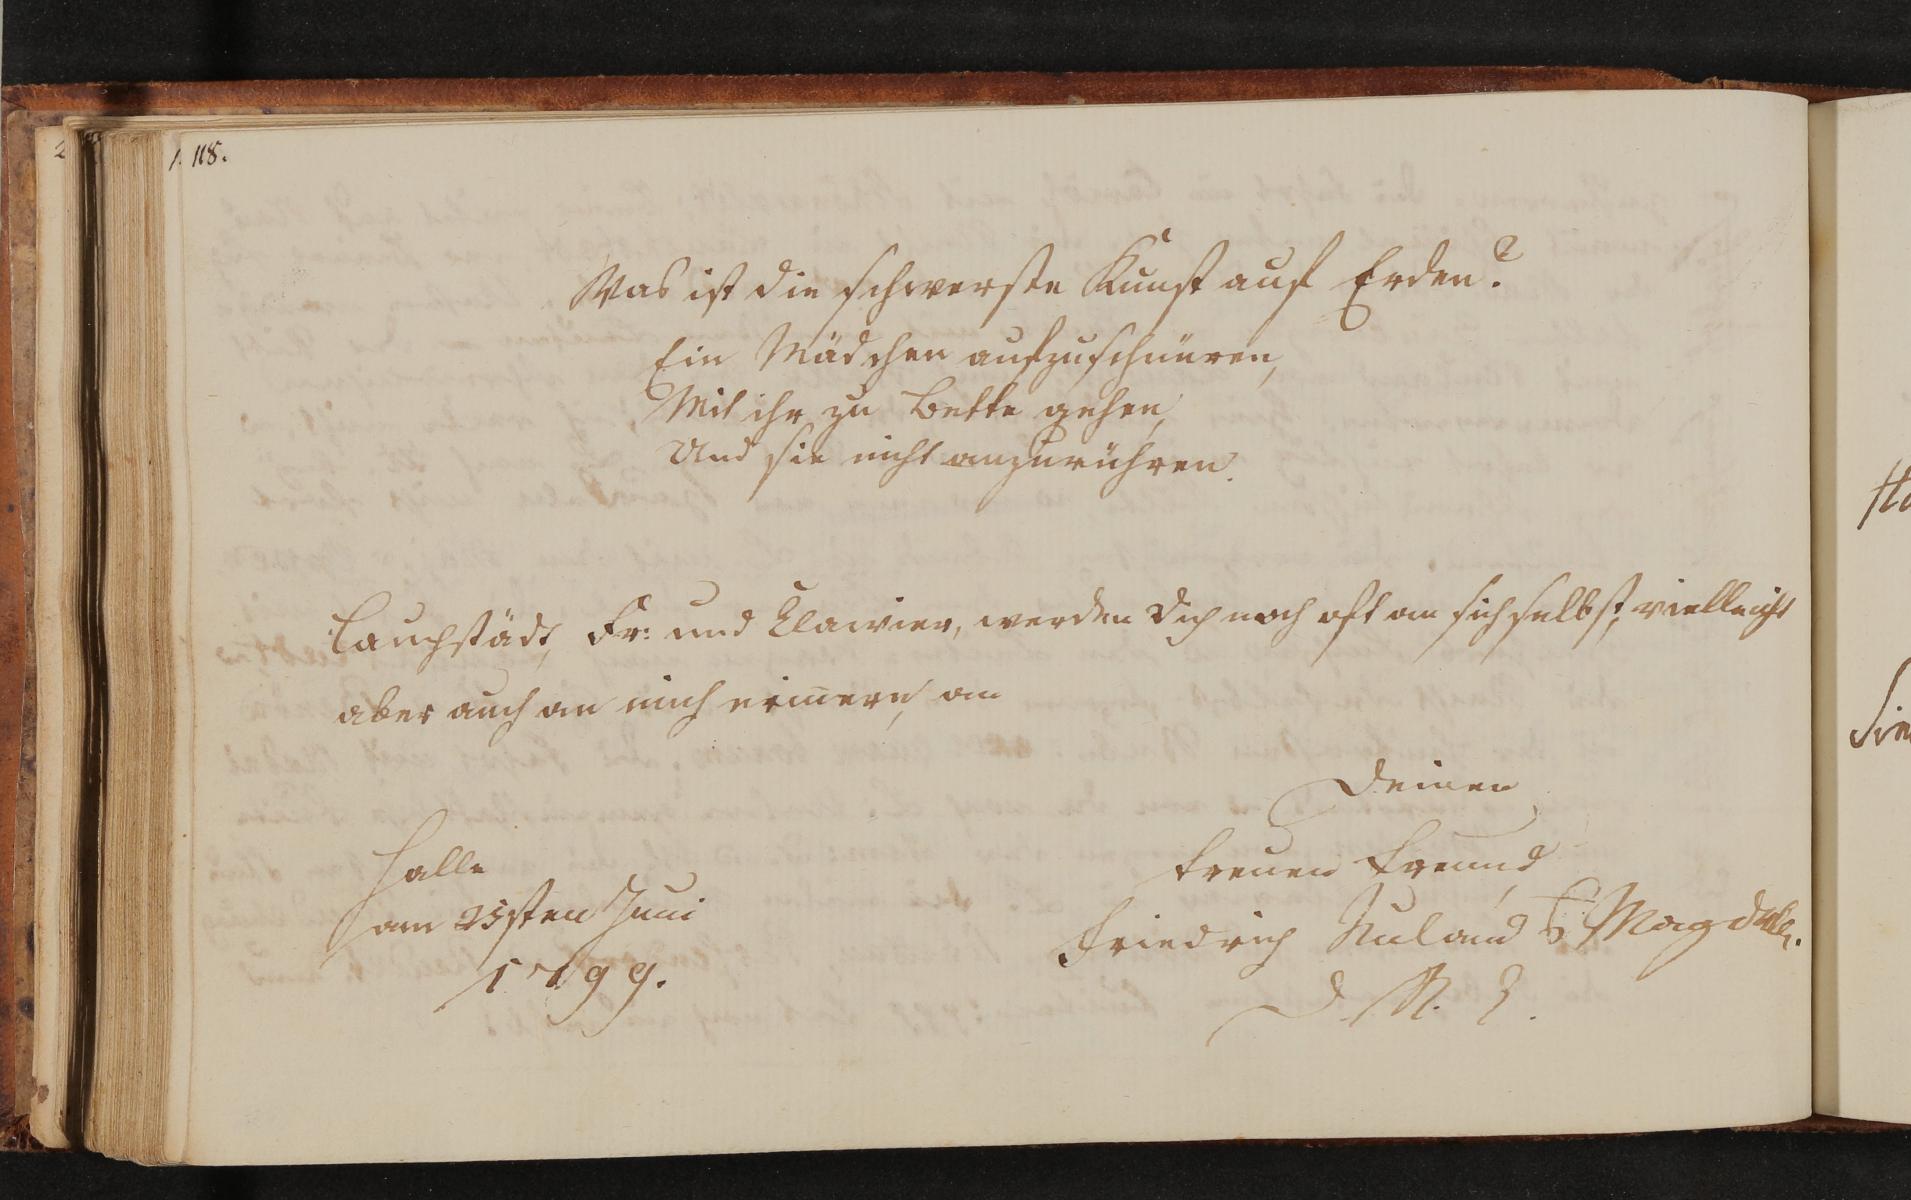 118.
Was ist die schwerste Kunst auf Erden?
Ein Mädchen aufzuschnüren,
Mit ihr zu Bette gehen,
Und sie nicht anzurühren.
Lauchstädt, Fr: und Clavier, werden Dich noch oft an sich selbst, vielleicht
aber auch an mich erinnern, an
Deinen
treuen Freund
Friedrich Ruland Magdeb.
D. R. B.
Halle
am 25sten Juni
1799.